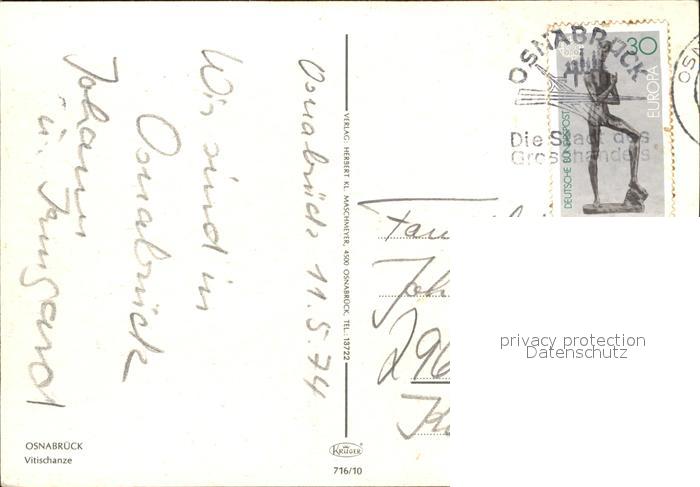 Osnabrück 11.5.74
Wir sind in
Osnabrück
Johann
u. Irmgard
VERLAG: HERBERT KL. MASCHMEYER, 4500 OSNABRÜCK, TEL.: 13722
OSNABRÜCK
Vitischanze
KRÜGER
716/10
OSNABRÜCK
Die Stadt des
Grosshandels
30
EUROPA
DEUTSCHE BUNDESPOST
Fam
Joh
296
privacy protection
Datenschutz